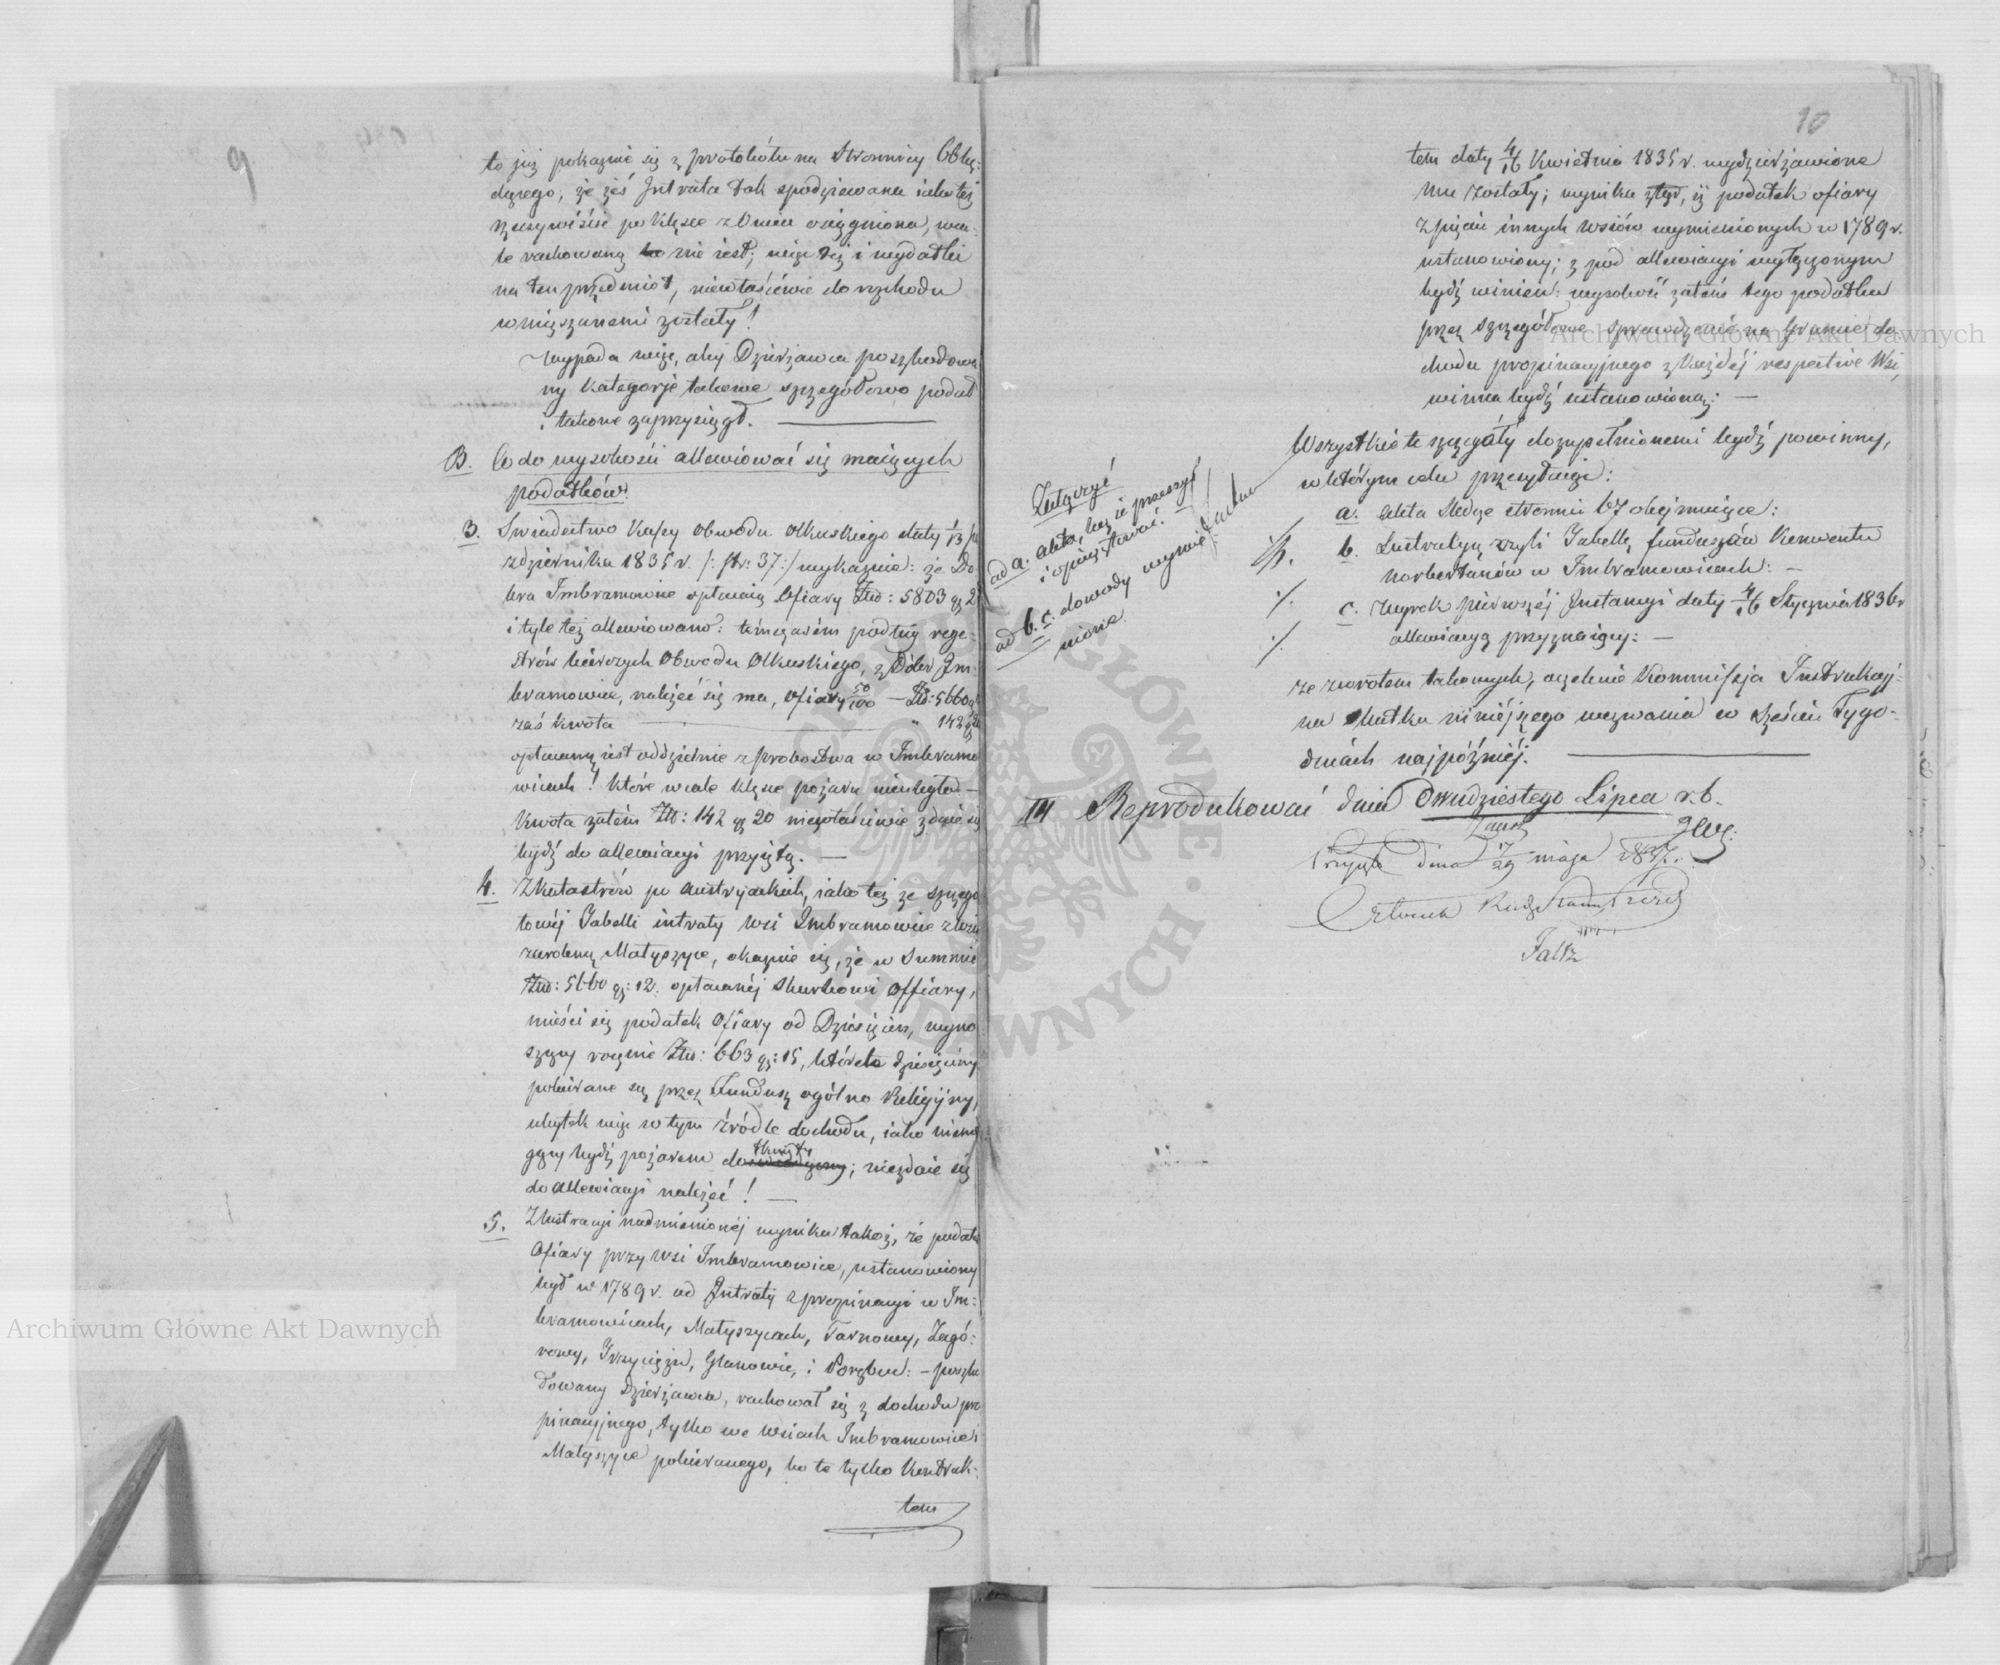 9
to już pokazuie się z protokółu na Stronnicy 66 bę-
dącego, że zaś Jntrata tak spodziewana iako też
rzeczywiście po klęsce z Dnia osiągniona, 
te rachowaną nie iest; więc też i wydatki
na ten przedmiot, niewłaściwie do rozchodu
wmięszanemi zostały!
Wypada więc, aby Dzierżawca poszkodowa
ny kategorje takowe szczegółowo podał
i takowe zaprzysiągł. —
B. Co do wysokości allewiować się maiących
podatków.
3. Swiadectwo Kassy Obwodu Olkuskiego daty 1/13 Pa
zdziernika 1835 r. /: str: 37:/ wykazuie: że Do
bra Imbramowice opłacaią Ofiary Złło: 5803 gr 2
i tyle też allewiowano: tymczasem podług rege-
strów bierczych Obwodu Olkuskiego, z Dóbr Jm-
bramowice, należeć się ma, Ofiary 50/100 — Zł: 5660
zaś kwota — " 142
opłacaną iest oddzielnie z probostwa w Imbramo
wicach! które wcale klęsce pożaru nieuległo. —
Kwota zatém Złło: 142 gr 20 niewłaściwie zdaie się
bydź do allewiacyi przyiętą. —
4. Z Katastrów po Austryackich, iako też ze szczegó
łowéj Tabelli intraty wsi Jmbramowice z wsią
zarobną Matyszyce, okazuie się, że w Summie
Złło: 5660 gr: 12. opłacanéj Skarbowi Offiary,
mieści się podatek Ofiary od Dziesięcin, wyno
szący rocznie Złło: 663 gr: 15, któreto dziesięciny
pobierane są przez Fundusz ogólno Religijny,
ubytek więc w tym źródle dochodu, iako niemo
gący bydź pożarem dotknięty; niezdaie się
do allewiacyi należeć! —
5. Z lustracyi nadmienionéj wynika także, że podatek
Ofiary przy wsi Imbramowice, ustanowiony
był w 1789 r. od Jntraty z propinacyi w Jm-
bramowicach, Matyszycach, Tarnowy, Zagó-
rowy, Trzyciąża, Glanowie, i Porąbce: – poszko
dowany Dzierżawca, rachował się z dochodu pro
pinacyjnego, tylko we wsiach Imbramowice i
Matyszyce pobieranego, bo te tylko Kontrak-
tem
10
tem daty 4/16 Kwietnia 1835 r. wydzierżawione
mu zostały; wynika ztąd, iż podatek ofiary
z pięciu innych wsiów wymienionych w 1789 r.
ustanowiony; z pod allewiacyi wyłączonym
bydź winien: wysokość zatém tego podatku
przez szczegółowe sprawdzenie na gruncie do
chodu propinacyjnego z każdéj respective wsi,
winna bydź ustanowioną: —
Wszystkie te szczegóły dozupełnionemi bydź powinny,
w którym celu przesyłaiąc:
a. Akta Sledcze stronnic 67 obejmuiące:
b. Lustracyą czyli Tabellę funduszów Konwentu
Norbertanów w Imbramowicach: —
c. Wyrok pierwszéj Jnstancyi daty 4/16 Stycznia 1836 r
allewiacyą przyznaiący: —
ze zwrotem takowych, oczekuie Kommissja Instrukcyi
na skutku niniéjszego wezwania w sześciu Tygo-
dniach najpóźniéj. —
Załączyć
ad a. akta, lecz ie przeszyć
i opieczętować.
ad b. c. dowody wymie-
nione.
III Reprodukować dnia Dwudziestego Lipca r. b.
dnia 17/29 maja 1837.